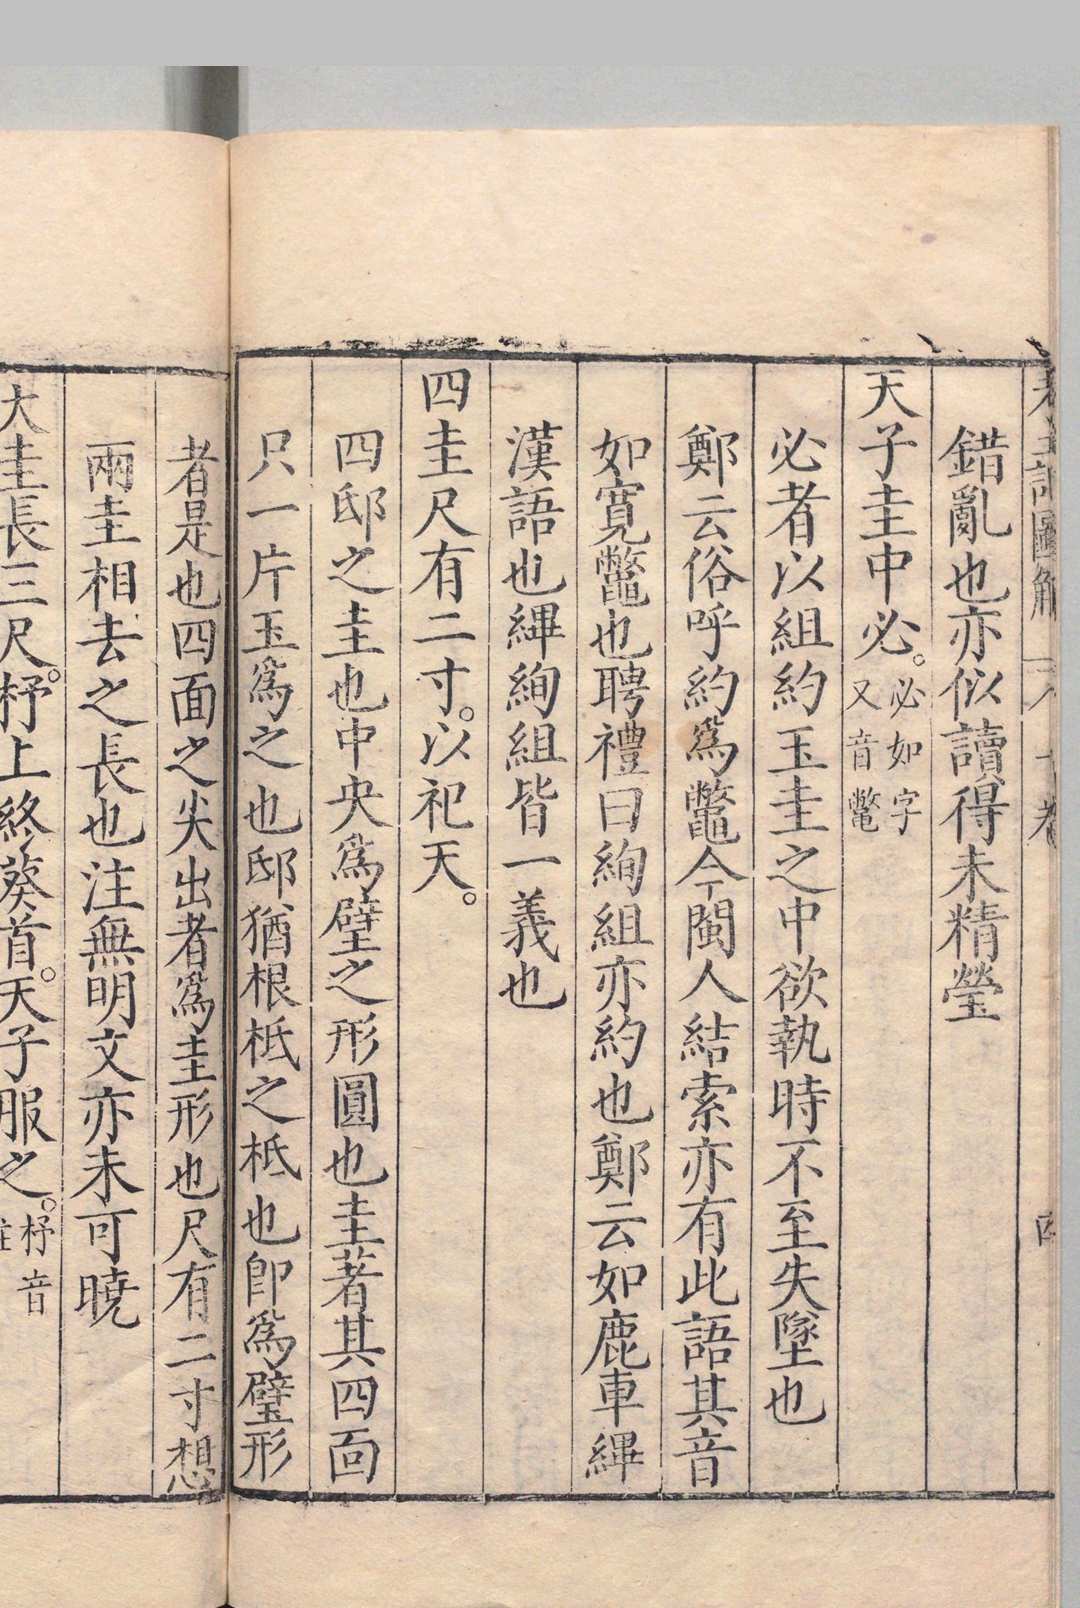 錯亂也亦似讀得未精瑩
天子圭中必。必如字又音鼈
必者以組約玉圭之中欲執時不至失墜也
鄭云俗呼約為鼈今閩人結索亦有此語其音
如寬鼈也聘禮曰絢組亦約也鄭云如鹿車繂
漢語也繂絢組皆一義也
四圭尺有二寸。以祀天。
四邸之圭也中央為璧之形圓也圭著其四面
只一片玉為之也邸猶根柢之柢也卽為璧形
者是也四面之尖出者為圭形也尺有二寸想
兩圭相去之長也注無明文亦未可曉
大圭長三尺。杼上終葵首。天子服之。杼音